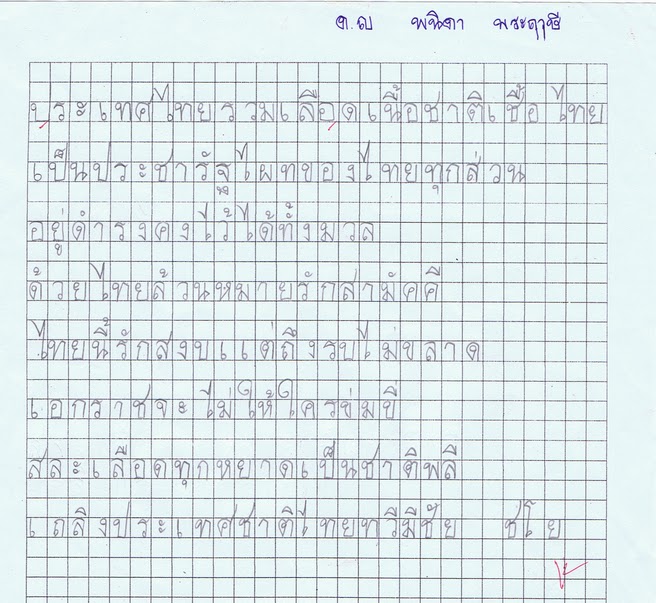 ด.ญ พนิดา พระฤาษี
ประเทศไทยรวมเลือดเนื้อชาติเชื้อไทย
เป็นประชารัฐไผทของไทยทุกส่วน
อยู่ดำรงคงไว้ได้ทั้งมวล
ด้วยไทยล้วนหมายรักสามัคคี
ไทยนี้รักสงบแต่ถึงรบไม่ขลาด
เอกราชจะไม่ให้ใครข่มขี่
สละเลือดทุกหยาดเป็นชาติพลี
เถลิงประเทศชาติไทยทวีมีชัย ชโย